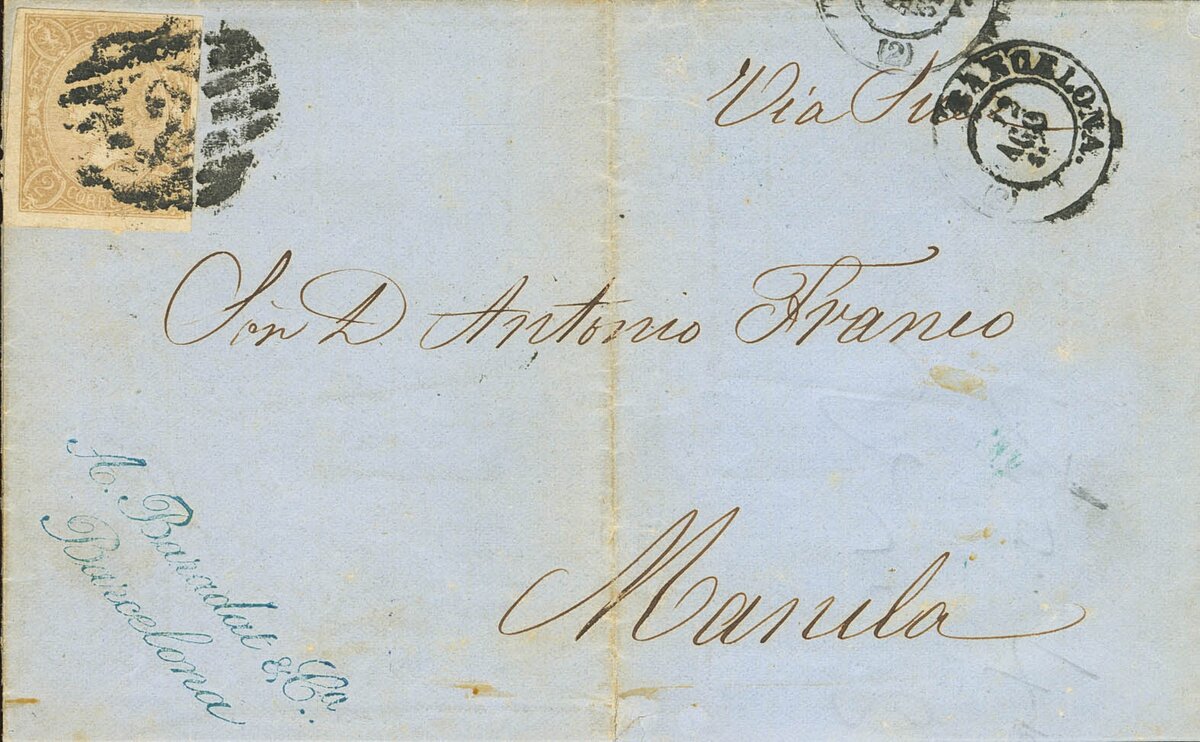 ESP
CORR
2
(2)
Via
BARCELONA.
AGO
(2)
Sōr D. Antonio Franco
Manila
A. Baradat & Ca.
Barcelona